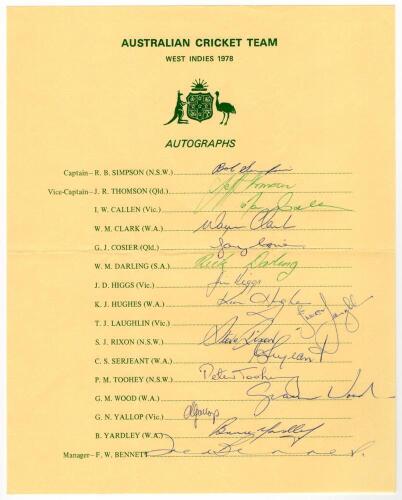 AUSTRALIAN CRICKET TEAM
WEST INDIES 1978
AUTOGRAPHS
Captain—R. B. SIMPSON (N.S.W.) Bob Simpson
Vice-Captain—J. R. THOMSON (Qld.) Jeff Thomson
I. W. CALLEN (Vic.) Ian Callen
W. M. CLARK (W.A.) Wayne Clark
G. J. COSIER (Qld.) Gary Cosier
W. M. DARLING (S.A.) Rick Darling
J. D. HIGGS (Vic.) Jim Higgs
K. J. HUGHES (W.A.) Kim Hughes
T. J. LAUGHLIN (Vic.) Trevor Laughlin
S. J. RIXON (N.S.W.) Steve Rixon
C. S. SERJEANT (W.A.) Serjeant
P. M. TOOHEY (N.S.W.) Peter Toohey
G. M. WOOD (W.A.) Graeme Wood
G. N. YALLOP (Vic.) GYallop
B. YARDLEY (W.A.) Bruce Yardley
Manager—F. W. BENNETT